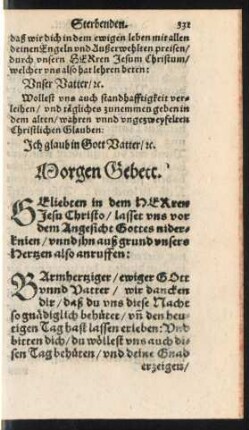 Sterbenden. 531
daß wir dich in dem ewigen leben mit allen
deinen Engeln vnd Außerwehlten preisen/
durch vnsern HERrn Jesum Christum/
welcher vns also hat lehren beten:
Vnser Vatter/ ꝛc.
Wollest vns auch standhafftigkeit ver-
leihen/ vnd täglichs zunemmen geben in
dem alten/ wahren vnnd vngezweyfelten
Christlichen Glauben:
Ich glaub in Gott Vatter/ ꝛc.
Morgen Gebett.
GEliebten in dem HERren
Jesu Christo/ lasset vns vor
dem Angesicht Gottes nider-
knien/ vnnd jhn auß grund vnsers
Hertzen also anruffen:
BArmhertziger/ ewiger GOtt
vnnd Vatter/ wir dancken
dir/ daß du vns diese Nacht
so gnädiglich behütet/ vñ den heu-
tigen Tag hast lassen erleben: Vnd
bitten dich/ du wöllest vns auch di-
sen Tag behüten/ vnd deine Gnad
erzeigen/